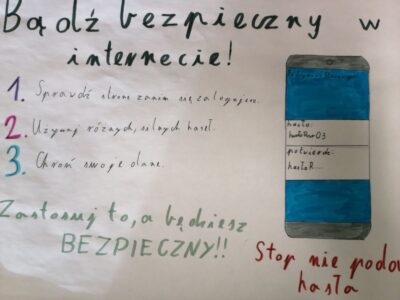 Bądź bezpieczny w
internecie!
1. Sprawdź stronę zanim się zalogujesz.
2. Używaj różnych, silnych haseł.
3. Chroń swoje dane.
hasło:
potwierdź:
hasłoR...
Zastosuj to, a będziesz
BEZPIECZNY!!
Stop nie podo
hasła